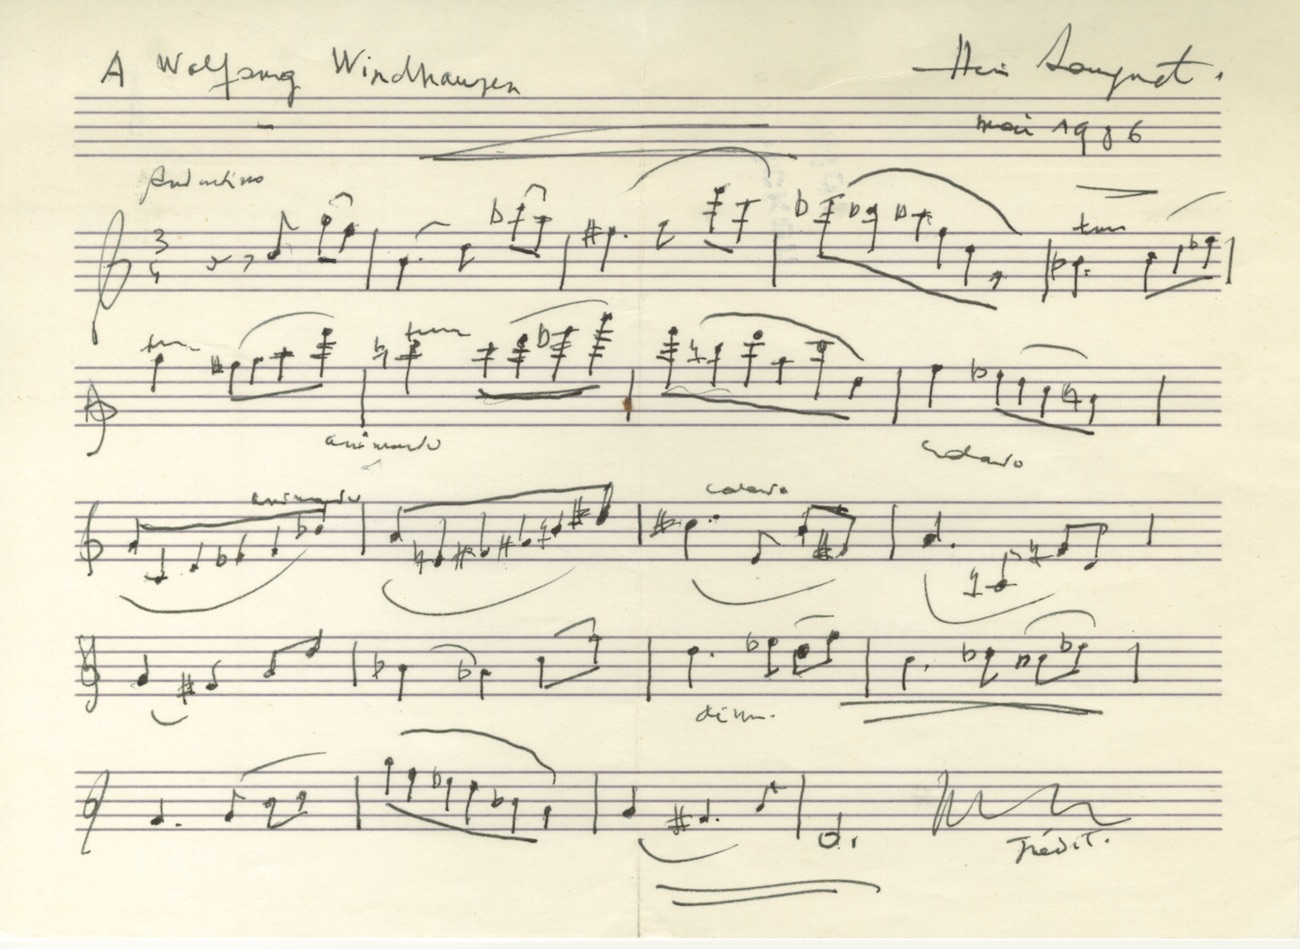 A Wolfgang Windhausen
Henri Sauguet.
mai 1986
Andantino
3
4
animando
cedendo
animando
cedendo
dim.
Inédit.